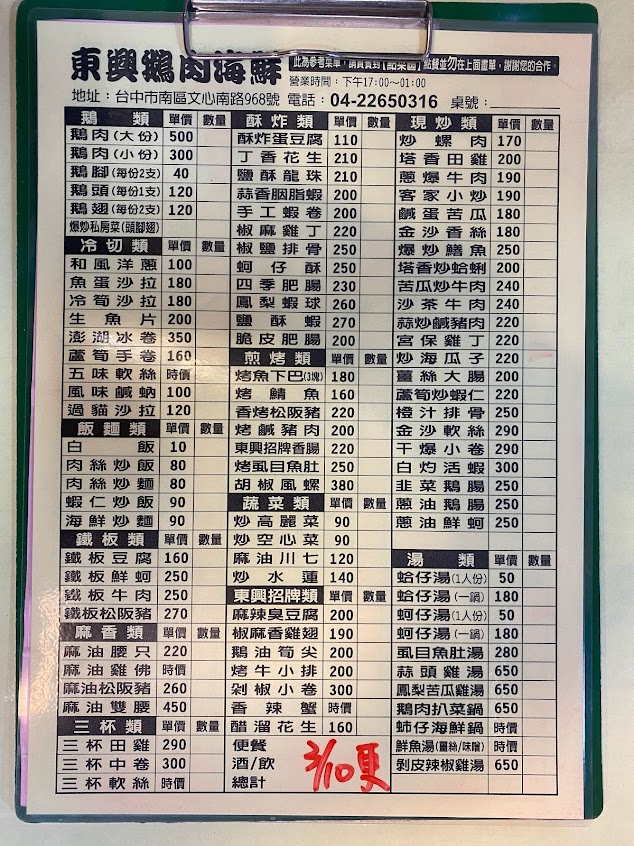 東興鵝肉海鮮
此為參考菜單，請貴賓到【點菜區】點餐並勿在上面畫單，謝謝您的合作。
營業時間：下午17:00～01:00
地址：台中市南區文心南路968號 電話：04-22650316 桌號：
鵝類 單價 數量
鵝肉(大份) 500
鵝肉(小份) 300
鵝腳(每份2支) 40
鵝頭(每份1支) 120
鵝翅(每份2支) 120
爆炒私房菜(頭腳翅)
冷切類 單價 數量
和風洋蔥 100
魚蛋沙拉 180
冷筍沙拉 180
生魚片 200
澎湖冰卷 350
蘆筍手卷 160
五味軟絲 時價
風味鹹蚋 100
過貓沙拉 120
飯麵類 單價 數量
白飯 10
肉絲炒飯 80
肉絲炒麵 80
蝦仁炒飯 90
海鮮炒麵 90
鐵板類 單價 數量
鐵板豆腐 160
鐵板鮮蚵 250
鐵板牛肉 250
鐵板松阪豬 270
麻香類 單價 數量
麻油腰只 220
麻油雞佛 時價
麻油松阪豬 260
麻油雙腰 450
三杯類 單價 數量
三杯田雞 290
三杯中卷 300
三杯軟絲 時價
酥炸類 單價 數量
酥炸蛋豆腐 110
丁香花生 210
鹽酥龍珠 210
蒜香胭脂蝦 200
手工蝦卷 200
椒麻雞丁 220
椒鹽排骨 250
蚵仔酥 250
四季肥腸 230
鳳梨蝦球 260
鹽酥蝦 270
脆皮肥腸 200
煎烤類 單價 數量
烤魚下巴(3塊) 180
烤鯖魚 160
香烤松阪豬 220
烤鹹豬肉 200
東興招牌香腸 220
烤虱目魚肚 250
胡椒風螺 380
蔬菜類 單價 數量
炒高麗菜 90
炒空心菜 90
麻油川七 120
炒水蓮 140
東興招牌類 單價 數量
麻辣臭豆腐 200
椒麻香雞翅 190
鵝油筍尖 200
烤牛小排 200
剁椒小卷 300
香辣蟹 時價
醋溜花生 160
便餐
酒/飲
總計
3/10更
現炒類 單價 數量
炒螺肉 170
塔香田雞 200
蔥爆牛肉 190
客家小炒 190
鹹蛋苦瓜 180
金沙香絲 180
爆炒鱔魚 250
塔香炒蛤蜊 200
苦瓜炒牛肉 240
沙茶牛肉 240
蒜炒鹹豬肉 220
宮保雞丁 220
炒海瓜子 220
薑絲大腸 200
蘆筍炒蝦仁 220
橙汁排骨 250
金沙軟絲 290
干爆小卷 290
白灼活蝦 300
韭菜鵝腸 250
蔥油鵝腸 250
蔥油鮮蚵 250
湯類 單價 數量
蛤仔湯(1人份) 50
蛤仔湯(一鍋) 180
蚵仔湯(1人份) 50
蚵仔湯(一鍋) 180
虱目魚肚湯 280
蒜頭雞湯 650
鳳梨苦瓜雞湯 650
鵝肉扒菜鍋 650
蚵仔海鮮鍋 時價
鮮魚湯(薑絲/味噌) 時價
剝皮辣椒雞湯 650